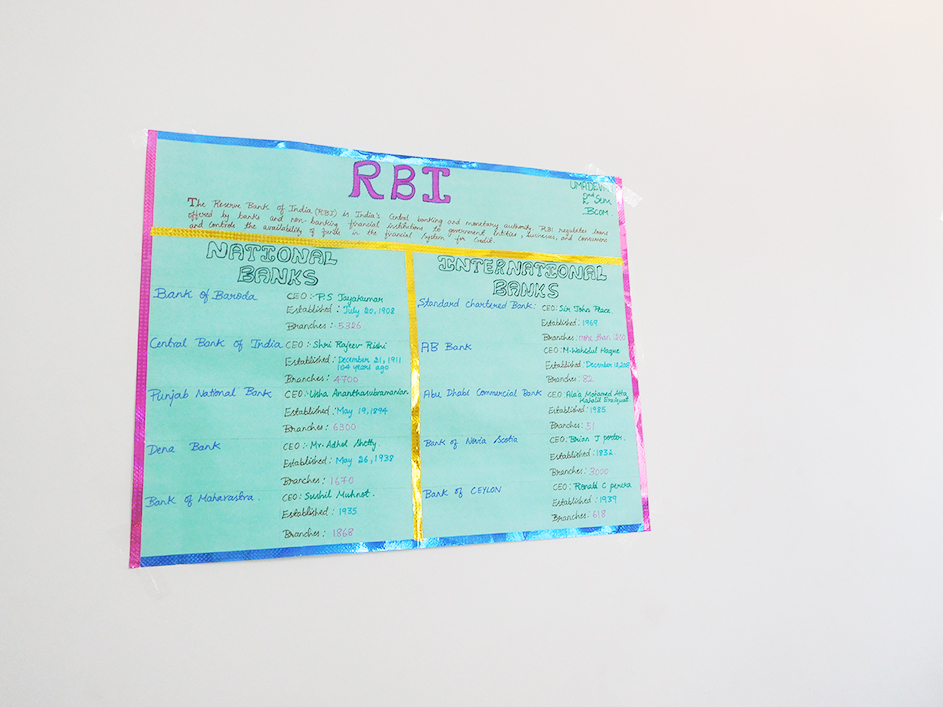 RBI
UMADEVI
2nd Sem
BCOM
The Reserve Bank of India (RBI) is India's Central banking and monetary authority. RBI regulates loans
offered by banks and non-banking financial institutions to government entities, businesses, and consumers
and controls the availability of funds in the financial system for credit.
NATIONAL
BANKS
Bank of Baroda CEO:- P.S Jayakumar
Established: July 20, 1908
Branches: 5326
Central Bank of India CEO:- Shri Rajeev Rishi
Established: December 21, 1911
104 years ago
Branches: 4700
Punjab National Bank CEO:- Usha Ananthasubramanian
Established: May 19, 1894
Branches: 6300
Dena Bank CEO:- Mr. Adhel Shetty.
Established: May 26, 1938
Branches: 1670
Bank of Maharastra. CEO: Sushil Muhnot.
Established: 1935
Branches: 1868
INTERNATIONAL
BANKS
Standard Chartered Bank: CEO: Sir John Peace.
Established: 1969
Branches: more than 1200
AB Bank CEO: M. Wahidul Haque
Established: December 12,
Branches: 82
Abu Dhabi Commercial Bank CEO: Ala'a Mohamed Atta
Khalil
Established: 1985
Branches: 51
Bank of Novia Scotia CEO: Brian J porter.
Established: 1832
Branches: 3000
Bank of CEYLON CEO: Ronald C perera
Established: 1939
Branches: 618